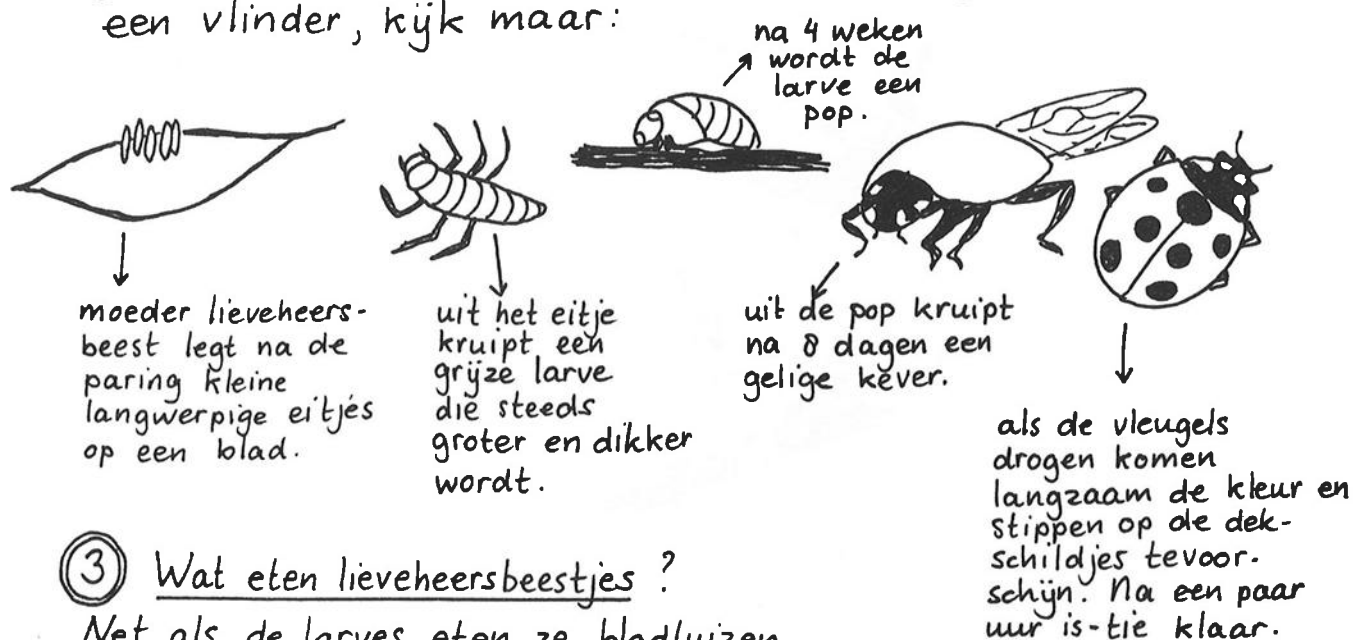 een vlinder, kijk maar:
na 4 weken
wordt de
larve een
pop.
moeder lieveheers-
beest legt na de
paring kleine
langwerpige eitjes
op een blad.
uit het eitje
kruipt een
grijze larve
die steeds
groter en dikker
wordt.
uit de pop kruipt
na 8 dagen een
gelige kever.
als de vleugels
drogen komen
langzaam de kleur en
stippen op de dek-
schildjes tevoor-
schijn. Na een paar
uur is-tie klaar.
3 Wat eten lieveheersbeestjes ?
Net als de larves eten ze bladluizen